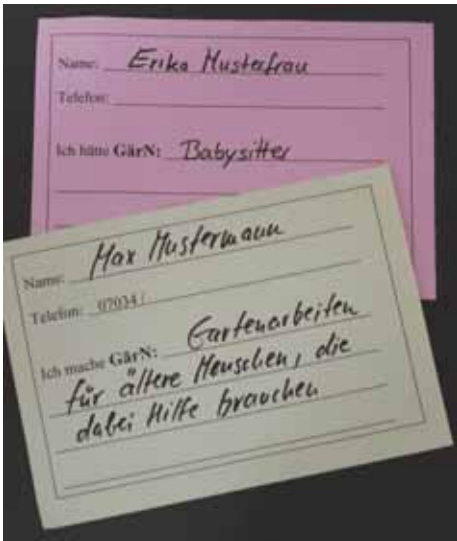 Name: Erika Musterfrau
Telefon:
Ich hätte GärN: Babysitter
Name: Max Mustermann
Telefon: 07034 /
Ich mache GärN: Gartenarbeiten
für ältere Menschen, die
dabei Hilfe brauchen